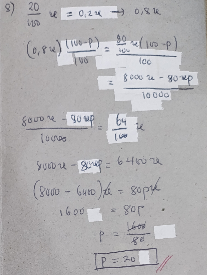 8) 20/100 x = 0,2x → 0,8x
(0,8x) (100-p)/100 = 80/100 x (100-p) / 100
= 8000x - 80xp / 10000
8000x - 80xp / 10000 = 64/100 x
8000x - 80xp = 6400x
(8000 - 6400)x = 80px
1600 = 80p
p = 1600/80
p = 20